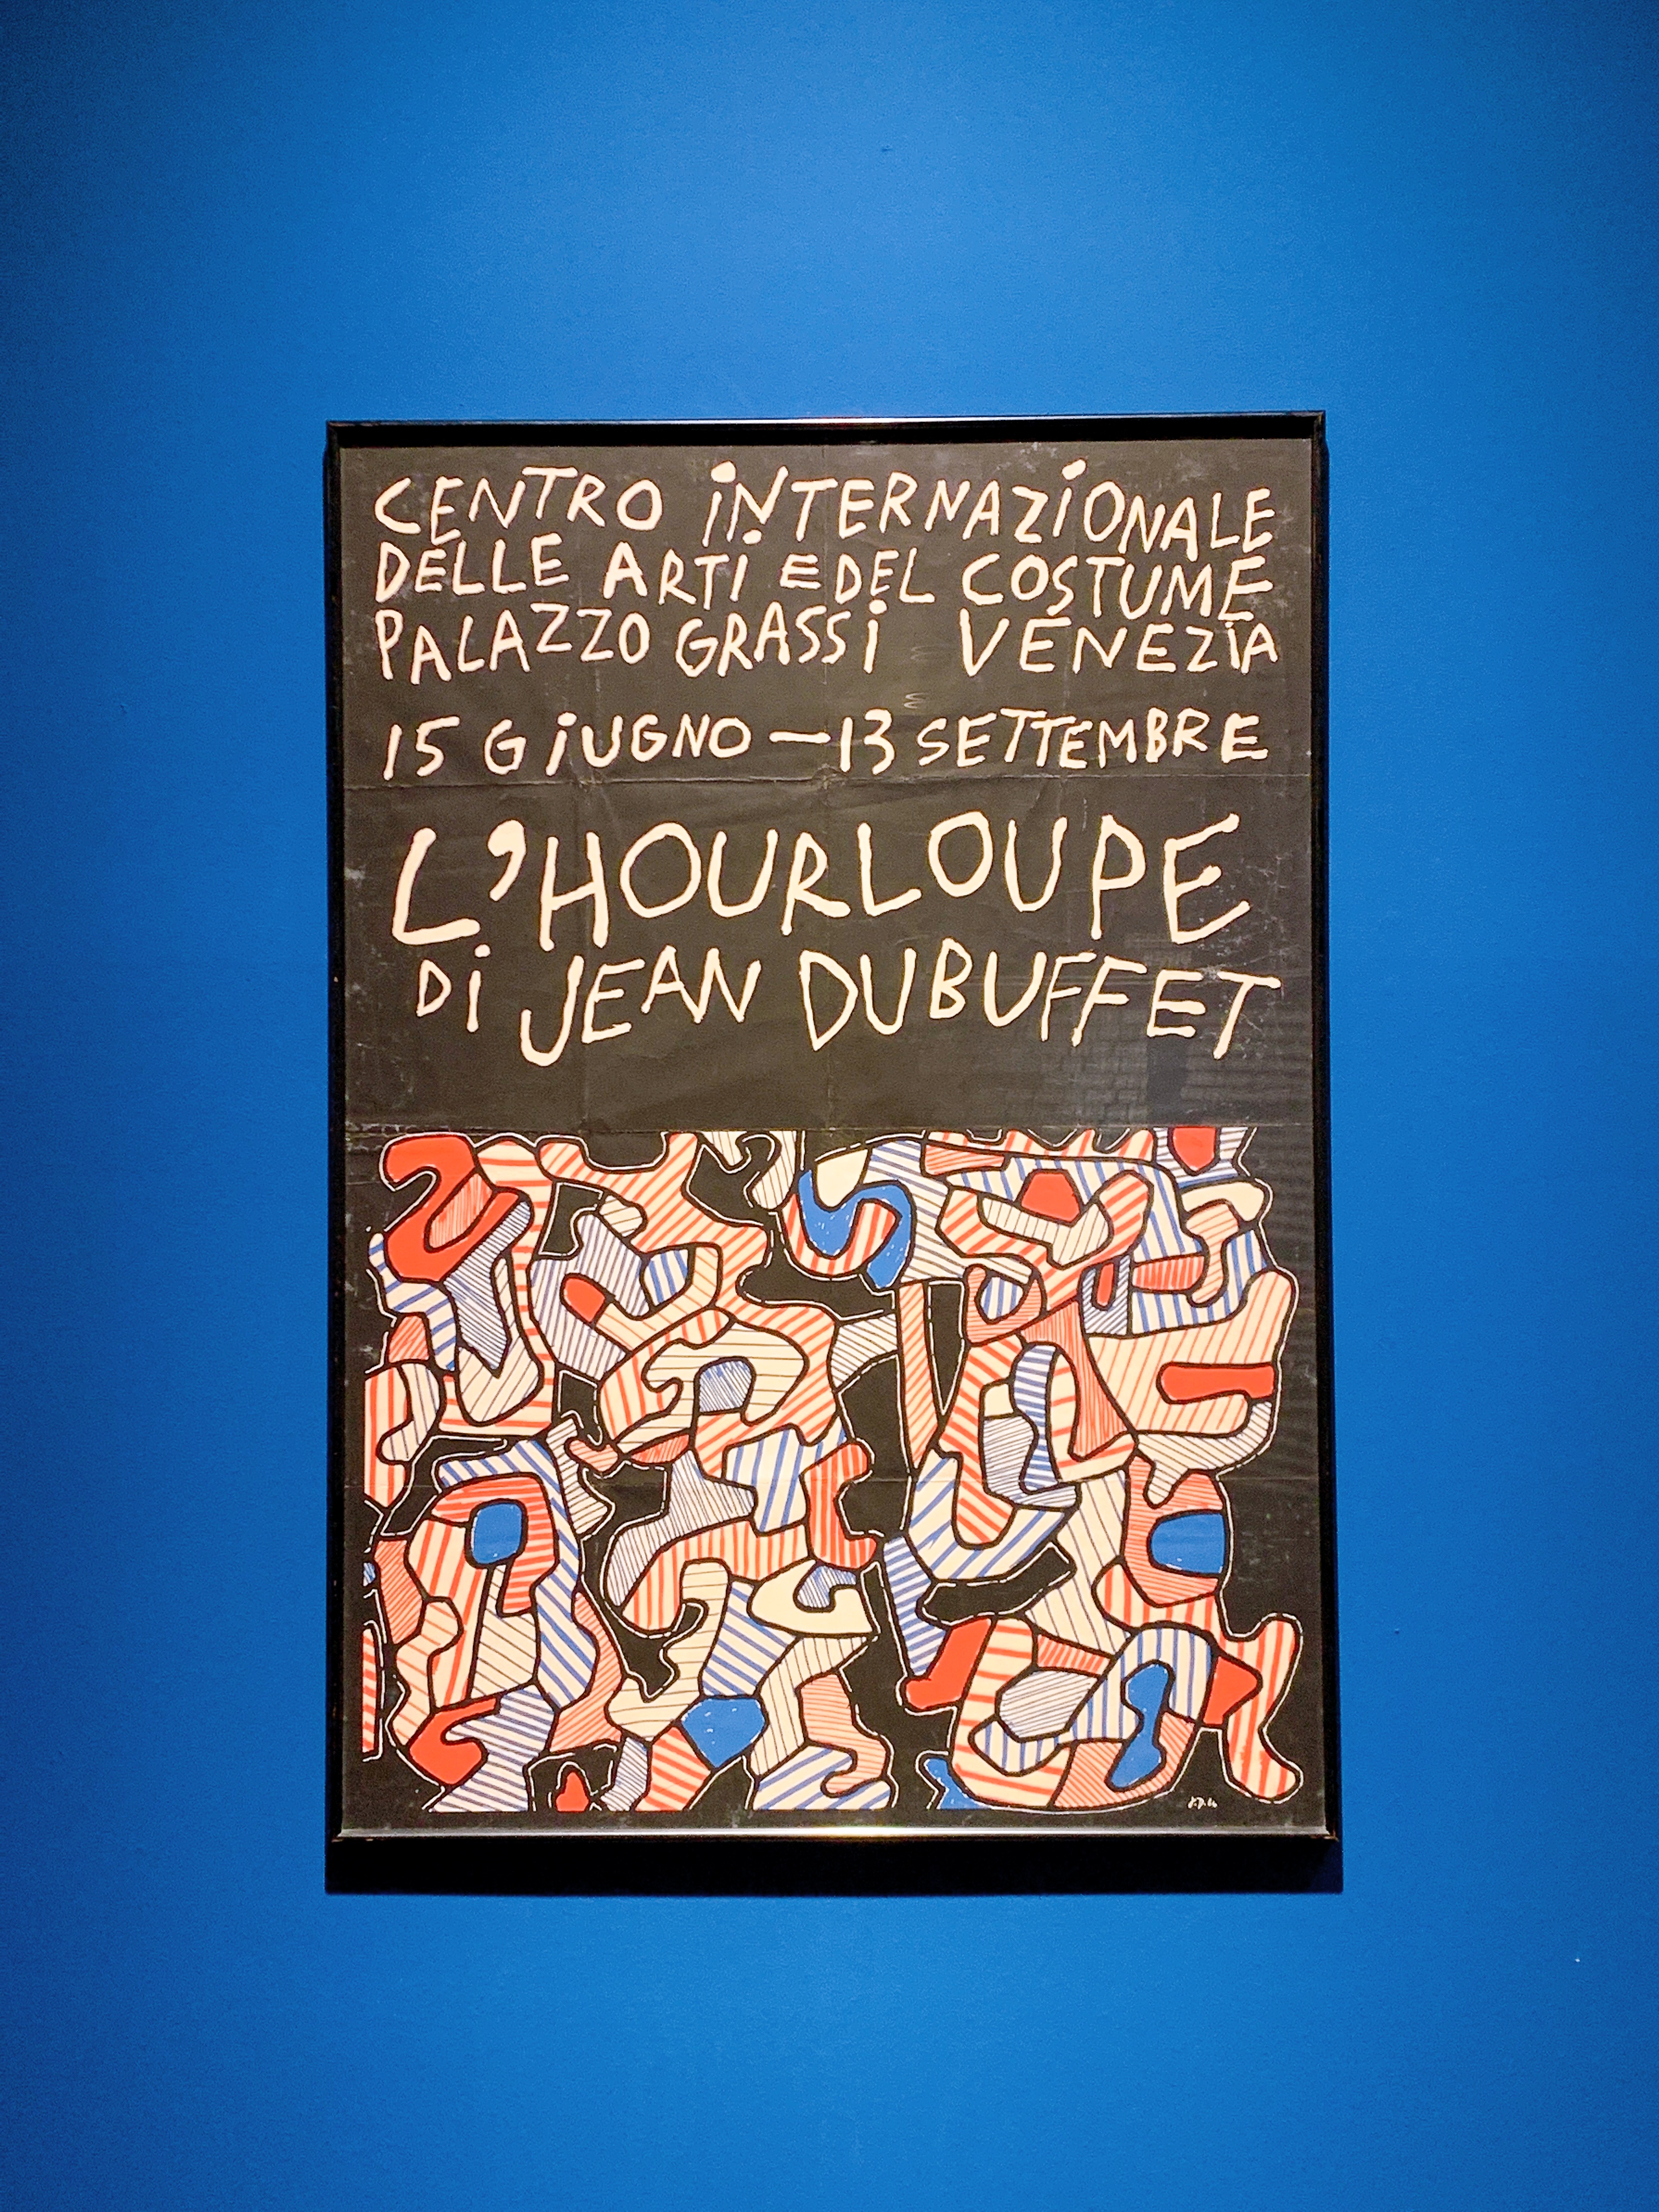 CENTRO iNTERNAZiONALE
DELLE ARTi E DEL COSTUME
PALAZZO GRASSi VENEZiA
15 GiUGNO — 13 SETTEMBRE
L'HOURLOUPE
Di JEAN DUBUFFET